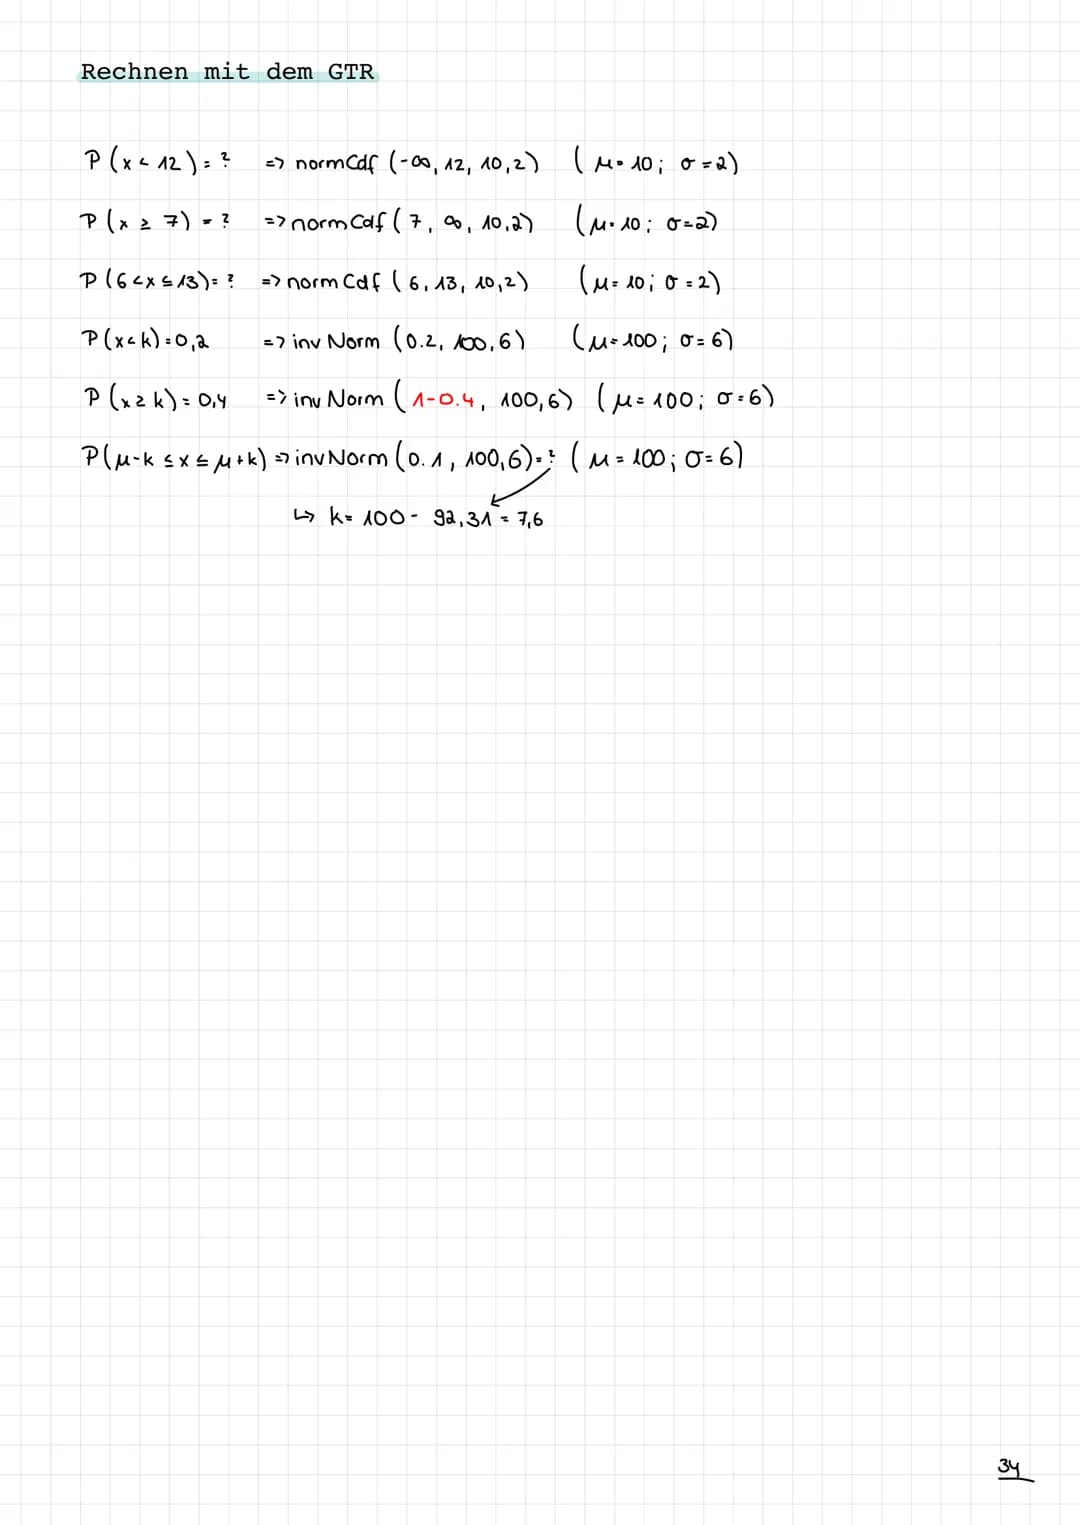 Rechnen mit dem GTR
P(x < 12) = ? => normCdf (-∞, 12, 10,2) (μ = 10; σ = 2)
P(x ≥ 7) = ? => normCdf (7, ∞, 10,2) (μ = 10; σ = 2)
P(6 < x ≤ 13) = ? => normCdf (6, 13, 10,2) (μ = 10; σ = 2)
P(x < k) = 0,2 => inv Norm (0.2, 100,6) (μ = 100; σ = 6)
P(x ≥ k) = 0,4 => inv Norm (1-0.4, 100,6) (μ = 100; σ = 6)
P(μ-k ≤ x ≤ μ+k) => invNorm (0.1, 100,6) = ? (μ = 100; σ = 6)
↳ k = 100 - 92,31 = 7,6
34